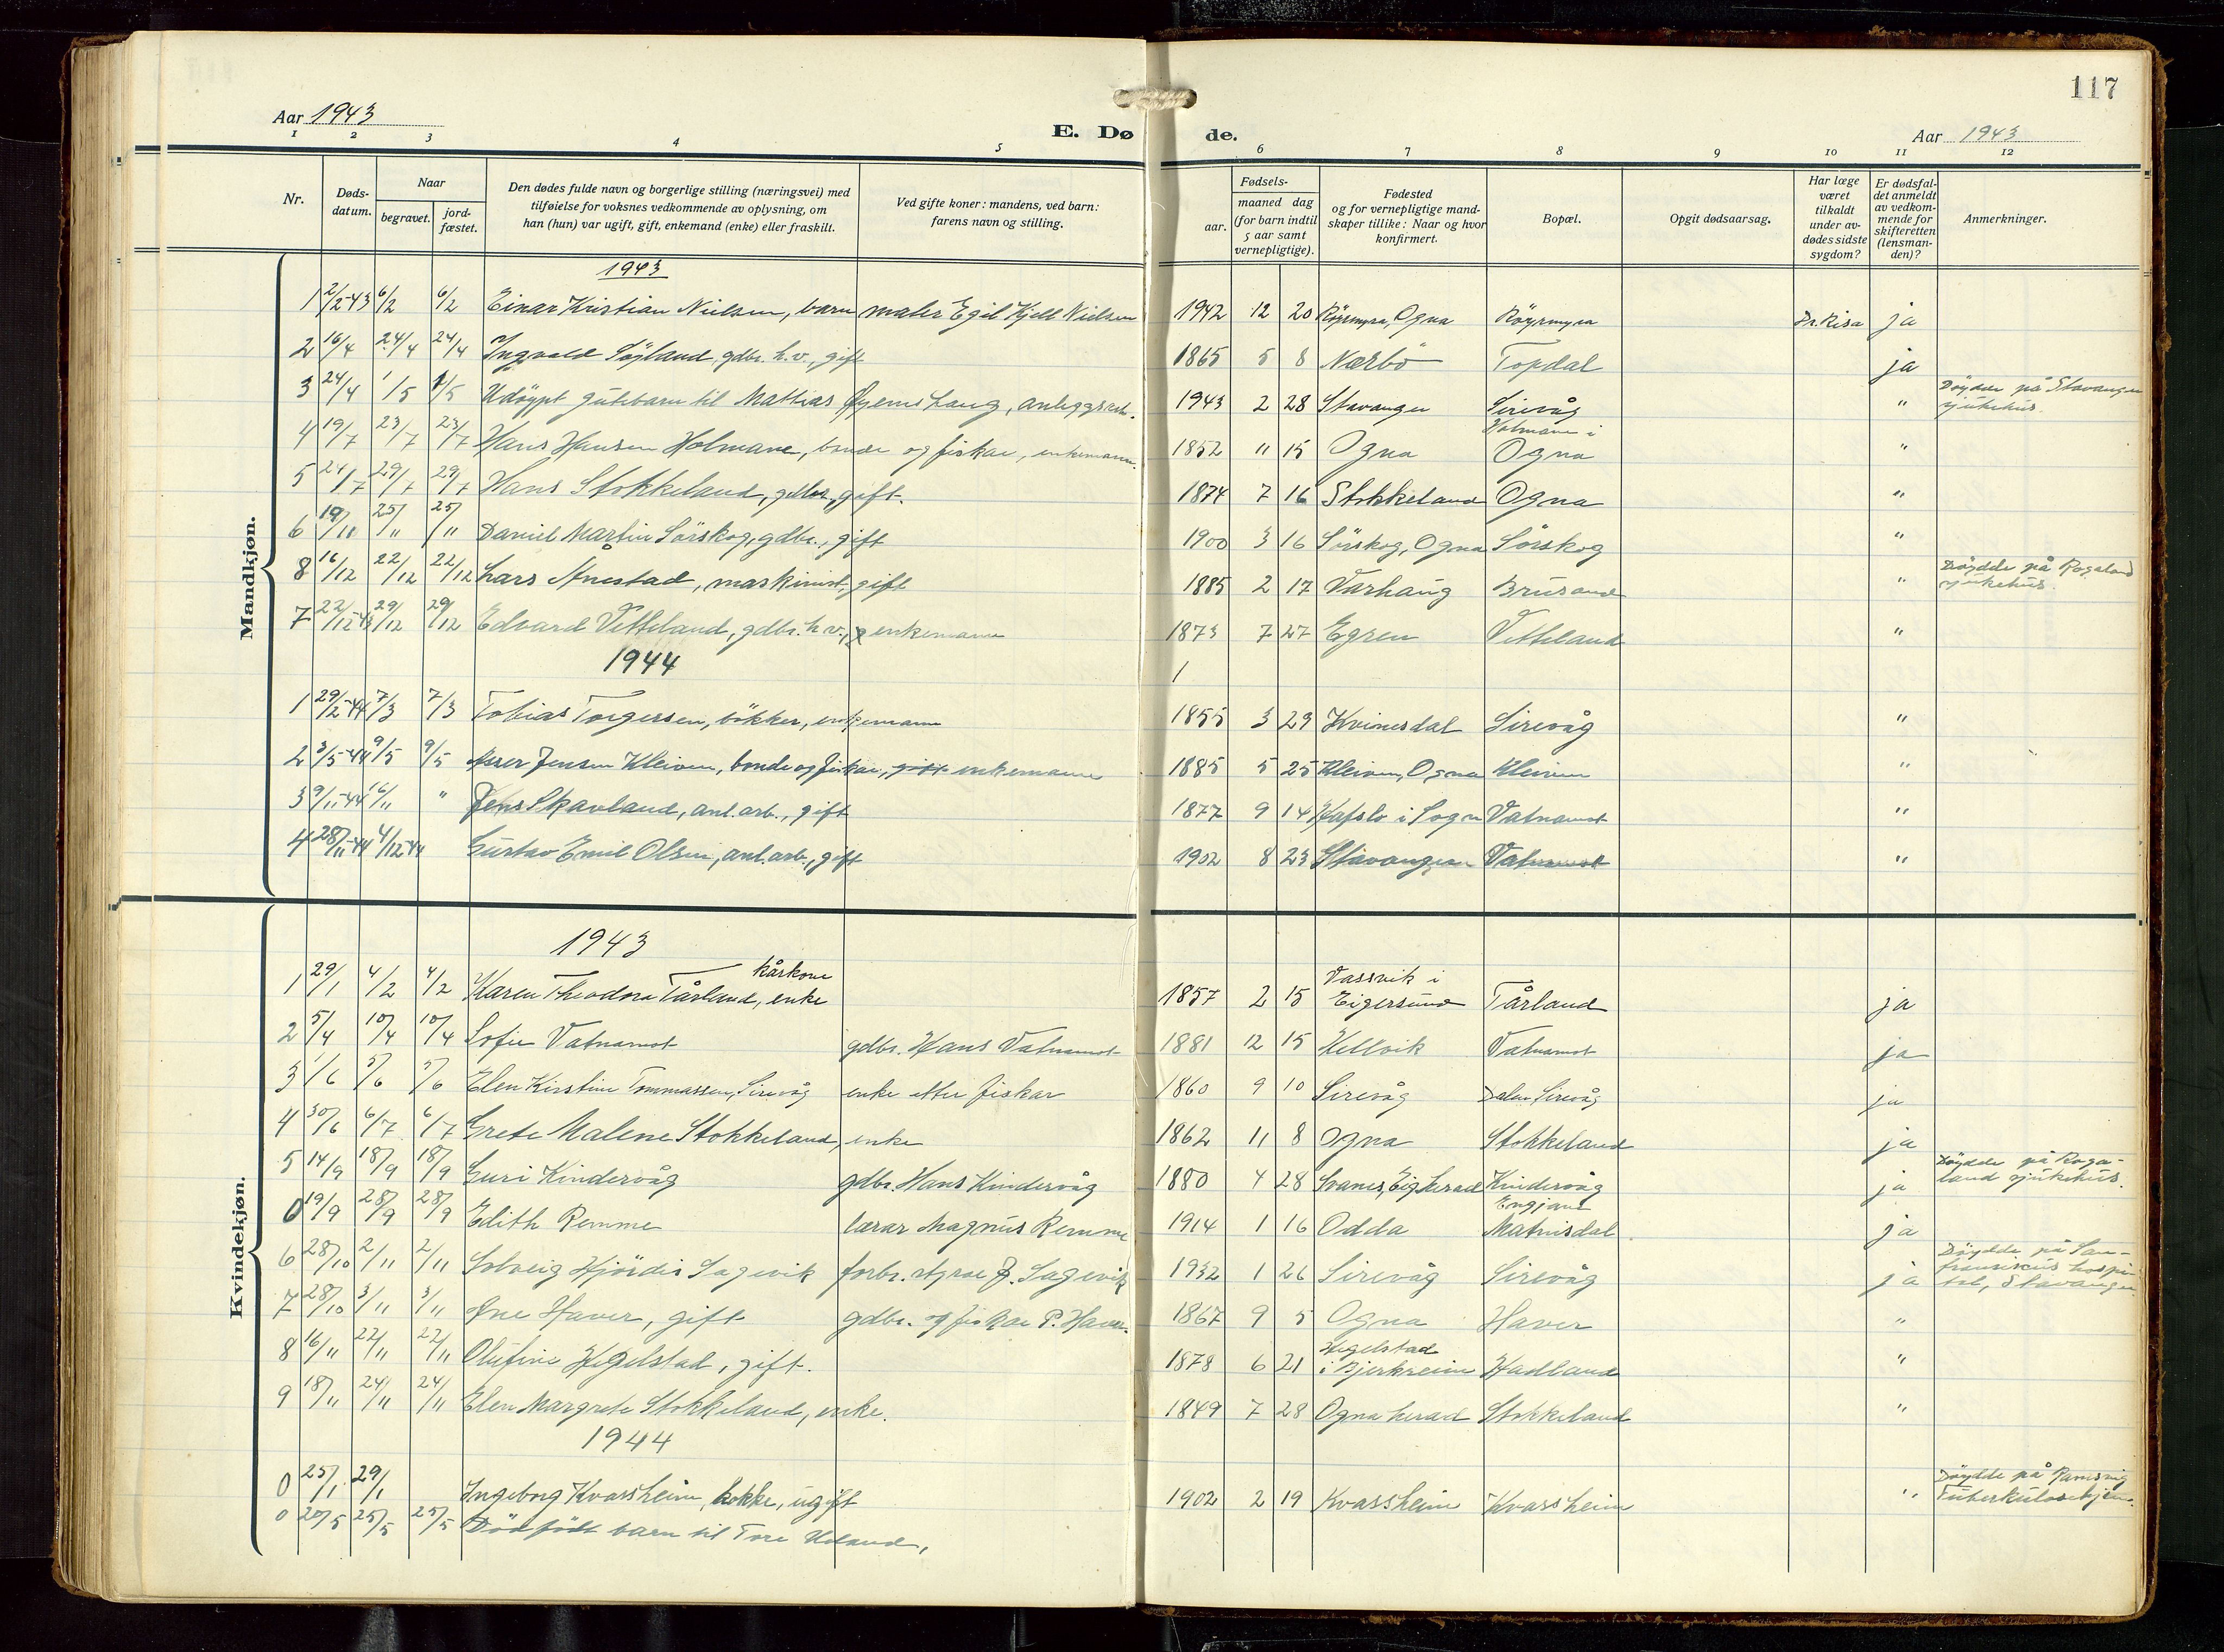 117
Aar 1943
E. Døde.
Aar 1943
1 2 3 4 5 6 7 8 9 10 11 12
Nr.
Dødsdatum.
Naar
begravet.
jordfæstet.
Den dødes fulde navn og borgerlige stilling (næringsvei) med
tilføielse for voksnes vedkommende av oplysning, om
han (hun) var ugift, gift, enkemand (enke) eller fraskilt.
Ved gifte koner: mandens, ved barn:
farens navn og stilling.
Fødsels-
aar. maaned dag
(for barn indtil
5 aar samt
vernepligtige).
Fødested
og for vernepligtige mand-
skaper tillike: Naar og hvor
konfirmert.
Bopæl.
Opgit dødsaarsag.
Har læge
været
tilkaldt
under av-
dødes sidste
sygdom?
Er dødsfal-
det anmeldt
av vedkom-
mende for
skifteretten
(lensman-
den)?
Anmerkninger.
Mandkjøn.
1943
1 2/2-43 6/2 6/2 Einar Kristian Nielsen, barn maler Egil Kjell Nielsen 1942 12 20 Røyrmyra, Ogna Røyrmyra Dr. Risa ja
2 16/4 24/4 24/4 Ingvald Søyland, gdbr. h.v., gift 1865 5 8 Nærbö Topdal ja
3 24/4 1/5 1/5 Udöypt gutebarn til Mattias Øyen Laug, anleggsarb. 1943 2 28 Stavanger Sirevåg " Döydde på Stavanger sjukehus.
4 19/7 23/7 23/7 Hans Hansen Holmane, bonde og fiskar, enkemann. 1852 11 15 Ogna Holmane i Ogna "
5 24/7 29/7 29/7 Hans Stokkeland, gdbr., gift. 1874 7 16 Stokkeland Ogna "
6 19/11 25/11 25/11 Daniel Martin Sörskog, gdbr., gift 1900 3 16 Sörskog, Ogna Sörskog "
8 16/12 22/12 22/12 Lars Ånestad, maskinist, gift 1885 2 17 Varhaug Brusand " Döydde på Rogaland sjukehus.
7 22/12-43 29/12 29/12 Edvard Vetteland, gdbr. h.v., enkemann 1873 7 27 Egren Vetteland "
1944
1 29/2-44 7/3 7/3 Tobias Torgersen, bökker, enkemann 1855 3 29 Kvinesdal Sirevåg "
2 3/5-44 9/5 9/5 Asser Jensen Kleiven, bonde og fiskar, gift enkemann 1885 5 25 Kleiven, Ogna Kleiven "
3 9/11-44 16/11 " Jens Skavland, anl.arb., gift 1877 9 14 Hafslo i Sogn Vatnamot "
4 28/11-44 4/12-44 Gustav Emil Olsen, anl.arb., gift 1902 8 23 Stavanger Vatnamot "
Kvindekjøn.
1943
1 29/1 4/2 4/2 Karen Theodora Tårland, enke kårkone 1857 2 15 Vassvik i Eigersund Tårland ja
2 5/4 10/4 10/4 Sofie Vatnamot gdbr. Hans Vatnamot 1881 12 15 Hellvik Vatnamot ja
3 1/6 5/6 5/6 Elen Kirstine Tommassen, Sirevåg enke etter fiskar 1860 9 10 Sirevåg Dalen Sirevåg ja
4 30/6 6/7 6/7 Grete Malene Stokkeland, enke 1862 11 8 Ogna Stokkeland ja
5 14/9 18/9 18/9 Guri Kindervåg gdbr. Hans Kindervåg 1880 4 28 Svanes, Eig. herad Kindervåg ja Döydde på Rogaland sjukehus.
0 19/9 28/9 28/9 Edith Remme lærar Magnus Remme 1914 1 16 Odda Engjane Matnisdal ja
6 28/10 2/11 2/11 Solveig Hjördis Sagevik forbr. styrar J. Sagevik 1932 1 26 Sirevåg Sirevåg ja Döydde på San-fransiskus hospital, Stavanger
7 28/10 3/11 3/11 Ane Haver, gift gdbr. og fiskar P. Haver. 1867 9 5 Ogna Haver "
8 16/11 22/11 22/11 Olufine Hegelstad, gift. 1878 6 21 Hegelstad i Bjerkreim Hadland "
9 18/11 24/11 24/11 Elen Margrete Stokkeland, enke. 1849 7 28 Ogna herad Stokkeland "
1944
0 25/1 29/1 Ingeborg Kvassheim, kokke, ugift 1902 2 19 Kvassheim Kvassheim " Döydde på Ramsvig Tuberkulosehjem.
0 20/5 25/5 25/5 Dödfödt barn til Tore Ueland,